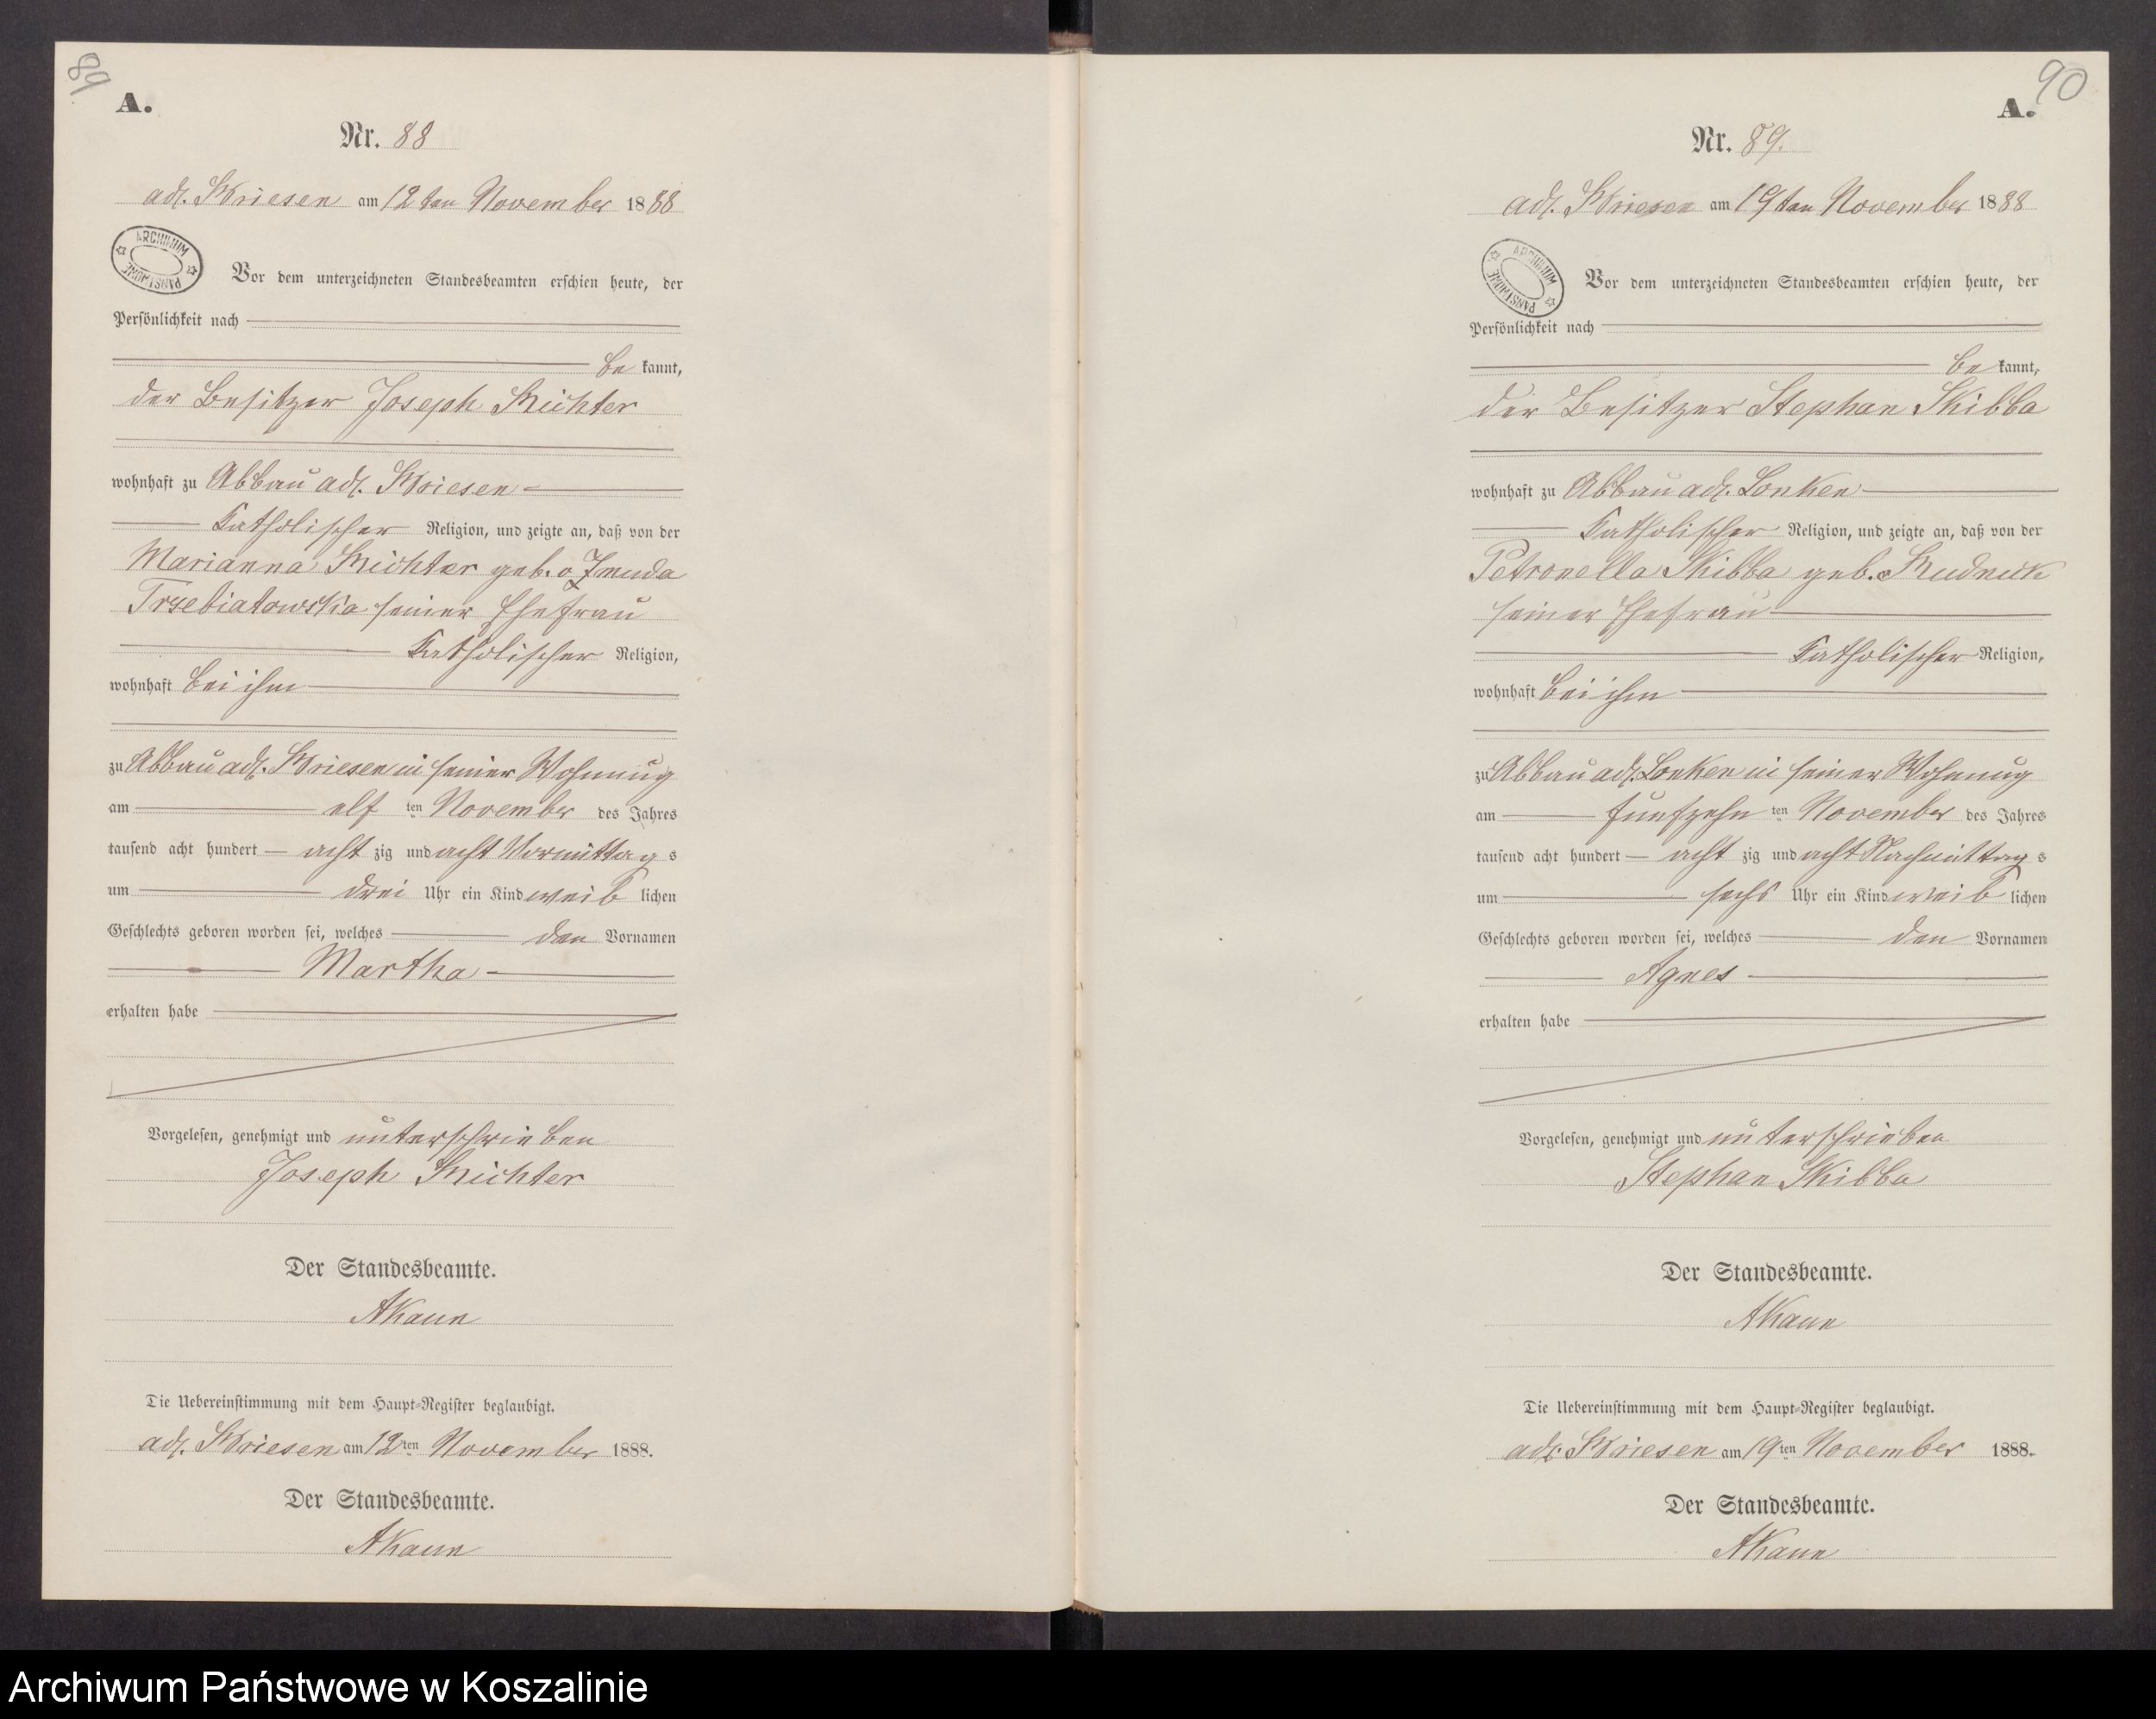 89
A.
Nr. 88
adl. Briesen am 12ten November 1888
ARCHIWUM PAŃSTWOWE
Vor dem unterzeichneten Standesbeamten erschien heute, der
Persönlichkeit nach
be kannt,
der Besitzer Joseph Richter
wohnhaft zu Abbau adl. Briesen
Katholischer Religion, und zeigte an, daß von der
Marianna Richter geb. v Zmuda
Trzebiatowska seiner Ehefrau
Katholischer Religion,
wohnhaft bei ihm
zu Abbau adl. Briesen in seiner Wohnung
am elf ten November des Jahres
tausend acht hundert acht zig und acht Vormittag s
um drei Uhr ein Kind weib lichen
Geschlechts geboren worden sei, welches den Vornamen
Martha
erhalten habe
Vorgelesen, genehmigt und unterschrieben
Joseph Richter
Der Standesbeamte.
AKaun
Die Uebereinstimmung mit dem Haupt-Register beglaubigt.
adl. Briesen am 12ten November 1888.
Der Standesbeamte.
AKaun
90
A.
Nr. 89.
adl. Briesen am 19ten November 1888
ARCHIWUM PAŃSTWOWE
Vor dem unterzeichneten Standesbeamten erschien heute, der
Persönlichkeit nach
be kannt,
der Besitzer Stephan Skibba
wohnhaft zu Abbau adl. Lonken
Katholischer Religion, und zeigte an, daß von der
Petronella Skibba geb. Rudnick
seiner Ehefrau
Katholischer Religion,
wohnhaft bei ihm
zu Abbau adl. Lonken in seiner Wohnung
am fünfzehn ten November des Jahres
tausend acht hundert acht zig und acht Nachmittag s
um sechs Uhr ein Kind weib lichen
Geschlechts geboren worden sei, welches den Vornamen
Agnes
erhalten habe
Vorgelesen, genehmigt und unterschrieben
Stephan Skibba
Der Standesbeamte.
AKaun
Die Uebereinstimmung mit dem Haupt-Register beglaubigt.
adl. Briesen am 19ten November 1888.
Der Standesbeamte.
AKaun
Archiwum Państwowe w Koszalinie